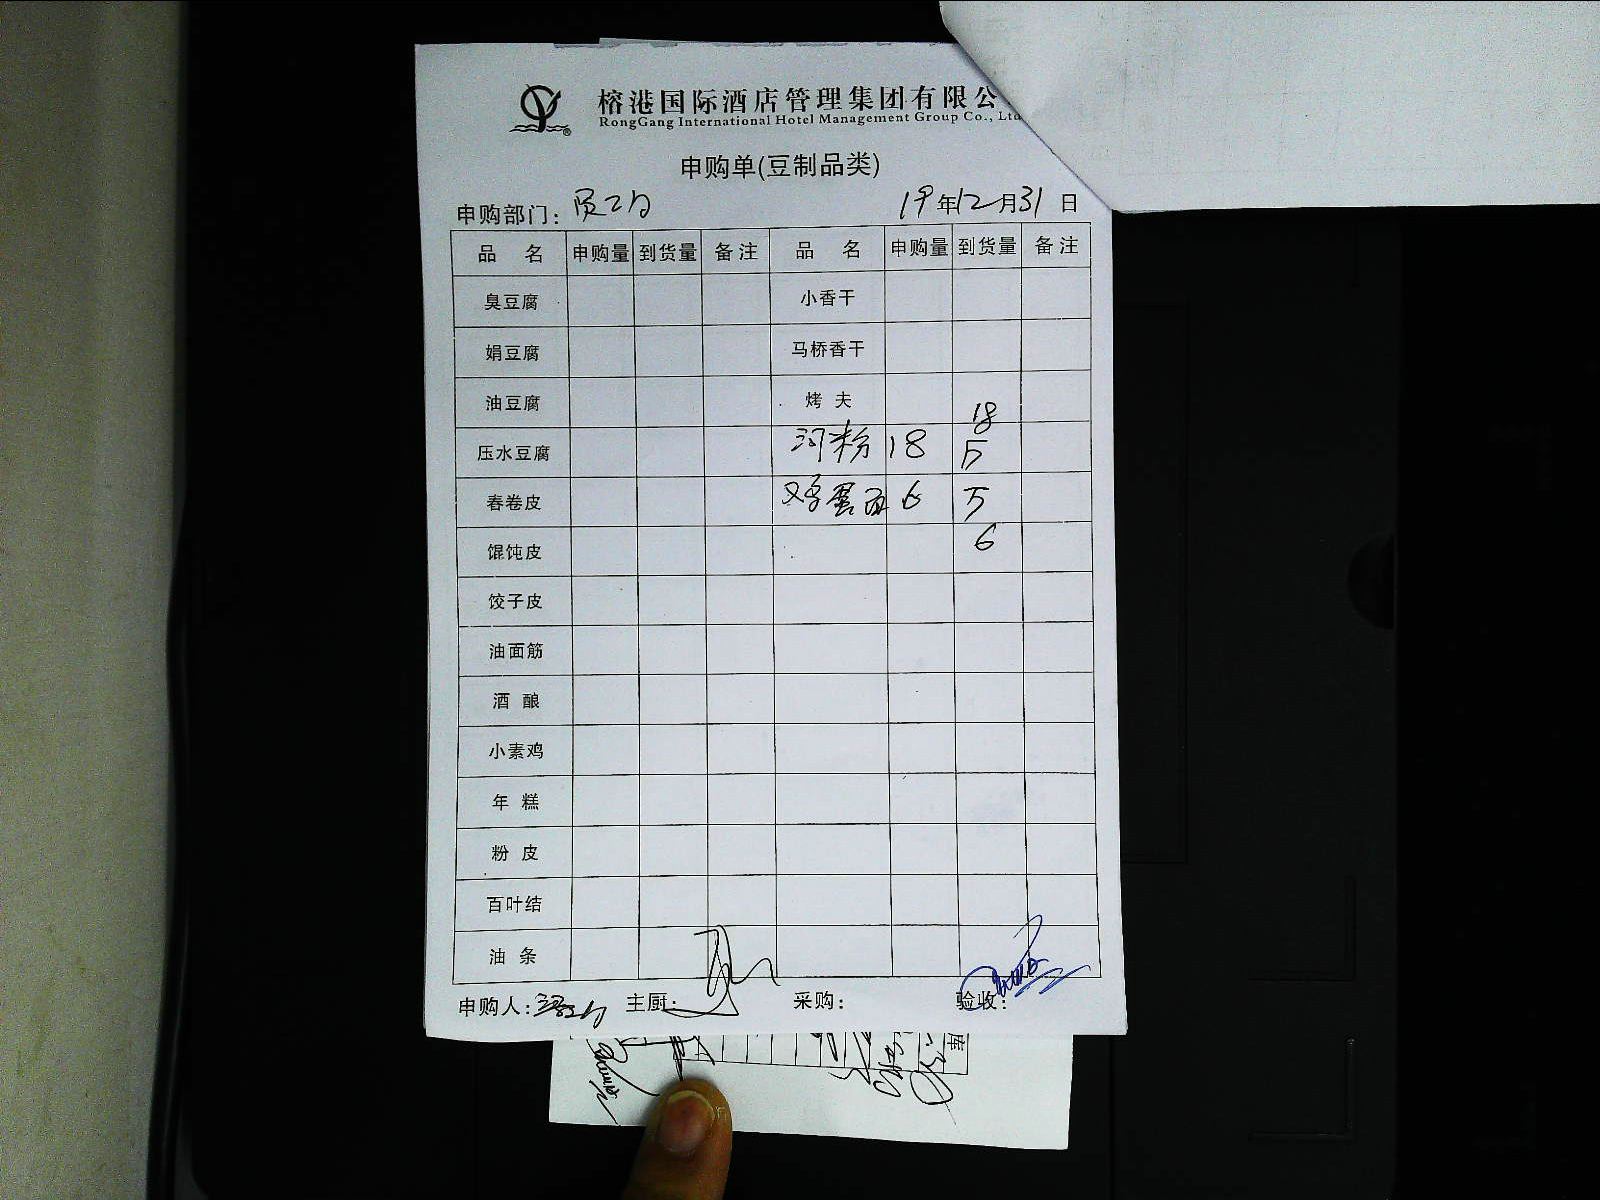 榕港国际酒店管理集团有限公
RongGang International Hotel Management Group Co., Ltd
申购单(豆制品类)
申购部门： 19年12月31日
品 名 申购量 到货量 备注 品 名 申购量 到货量 备注
臭豆腐 小香干
娟豆腐 马桥香干
油豆腐 烤 夫 18
压水豆腐 河粉 18 5
春卷皮 鸡蛋面 6 5
馄饨皮 6
饺子皮
油面筋
酒 酿
小素鸡
年 糕
粉 皮
百叶结
油 条
申购人： 主厨： 采购： 验收：
库